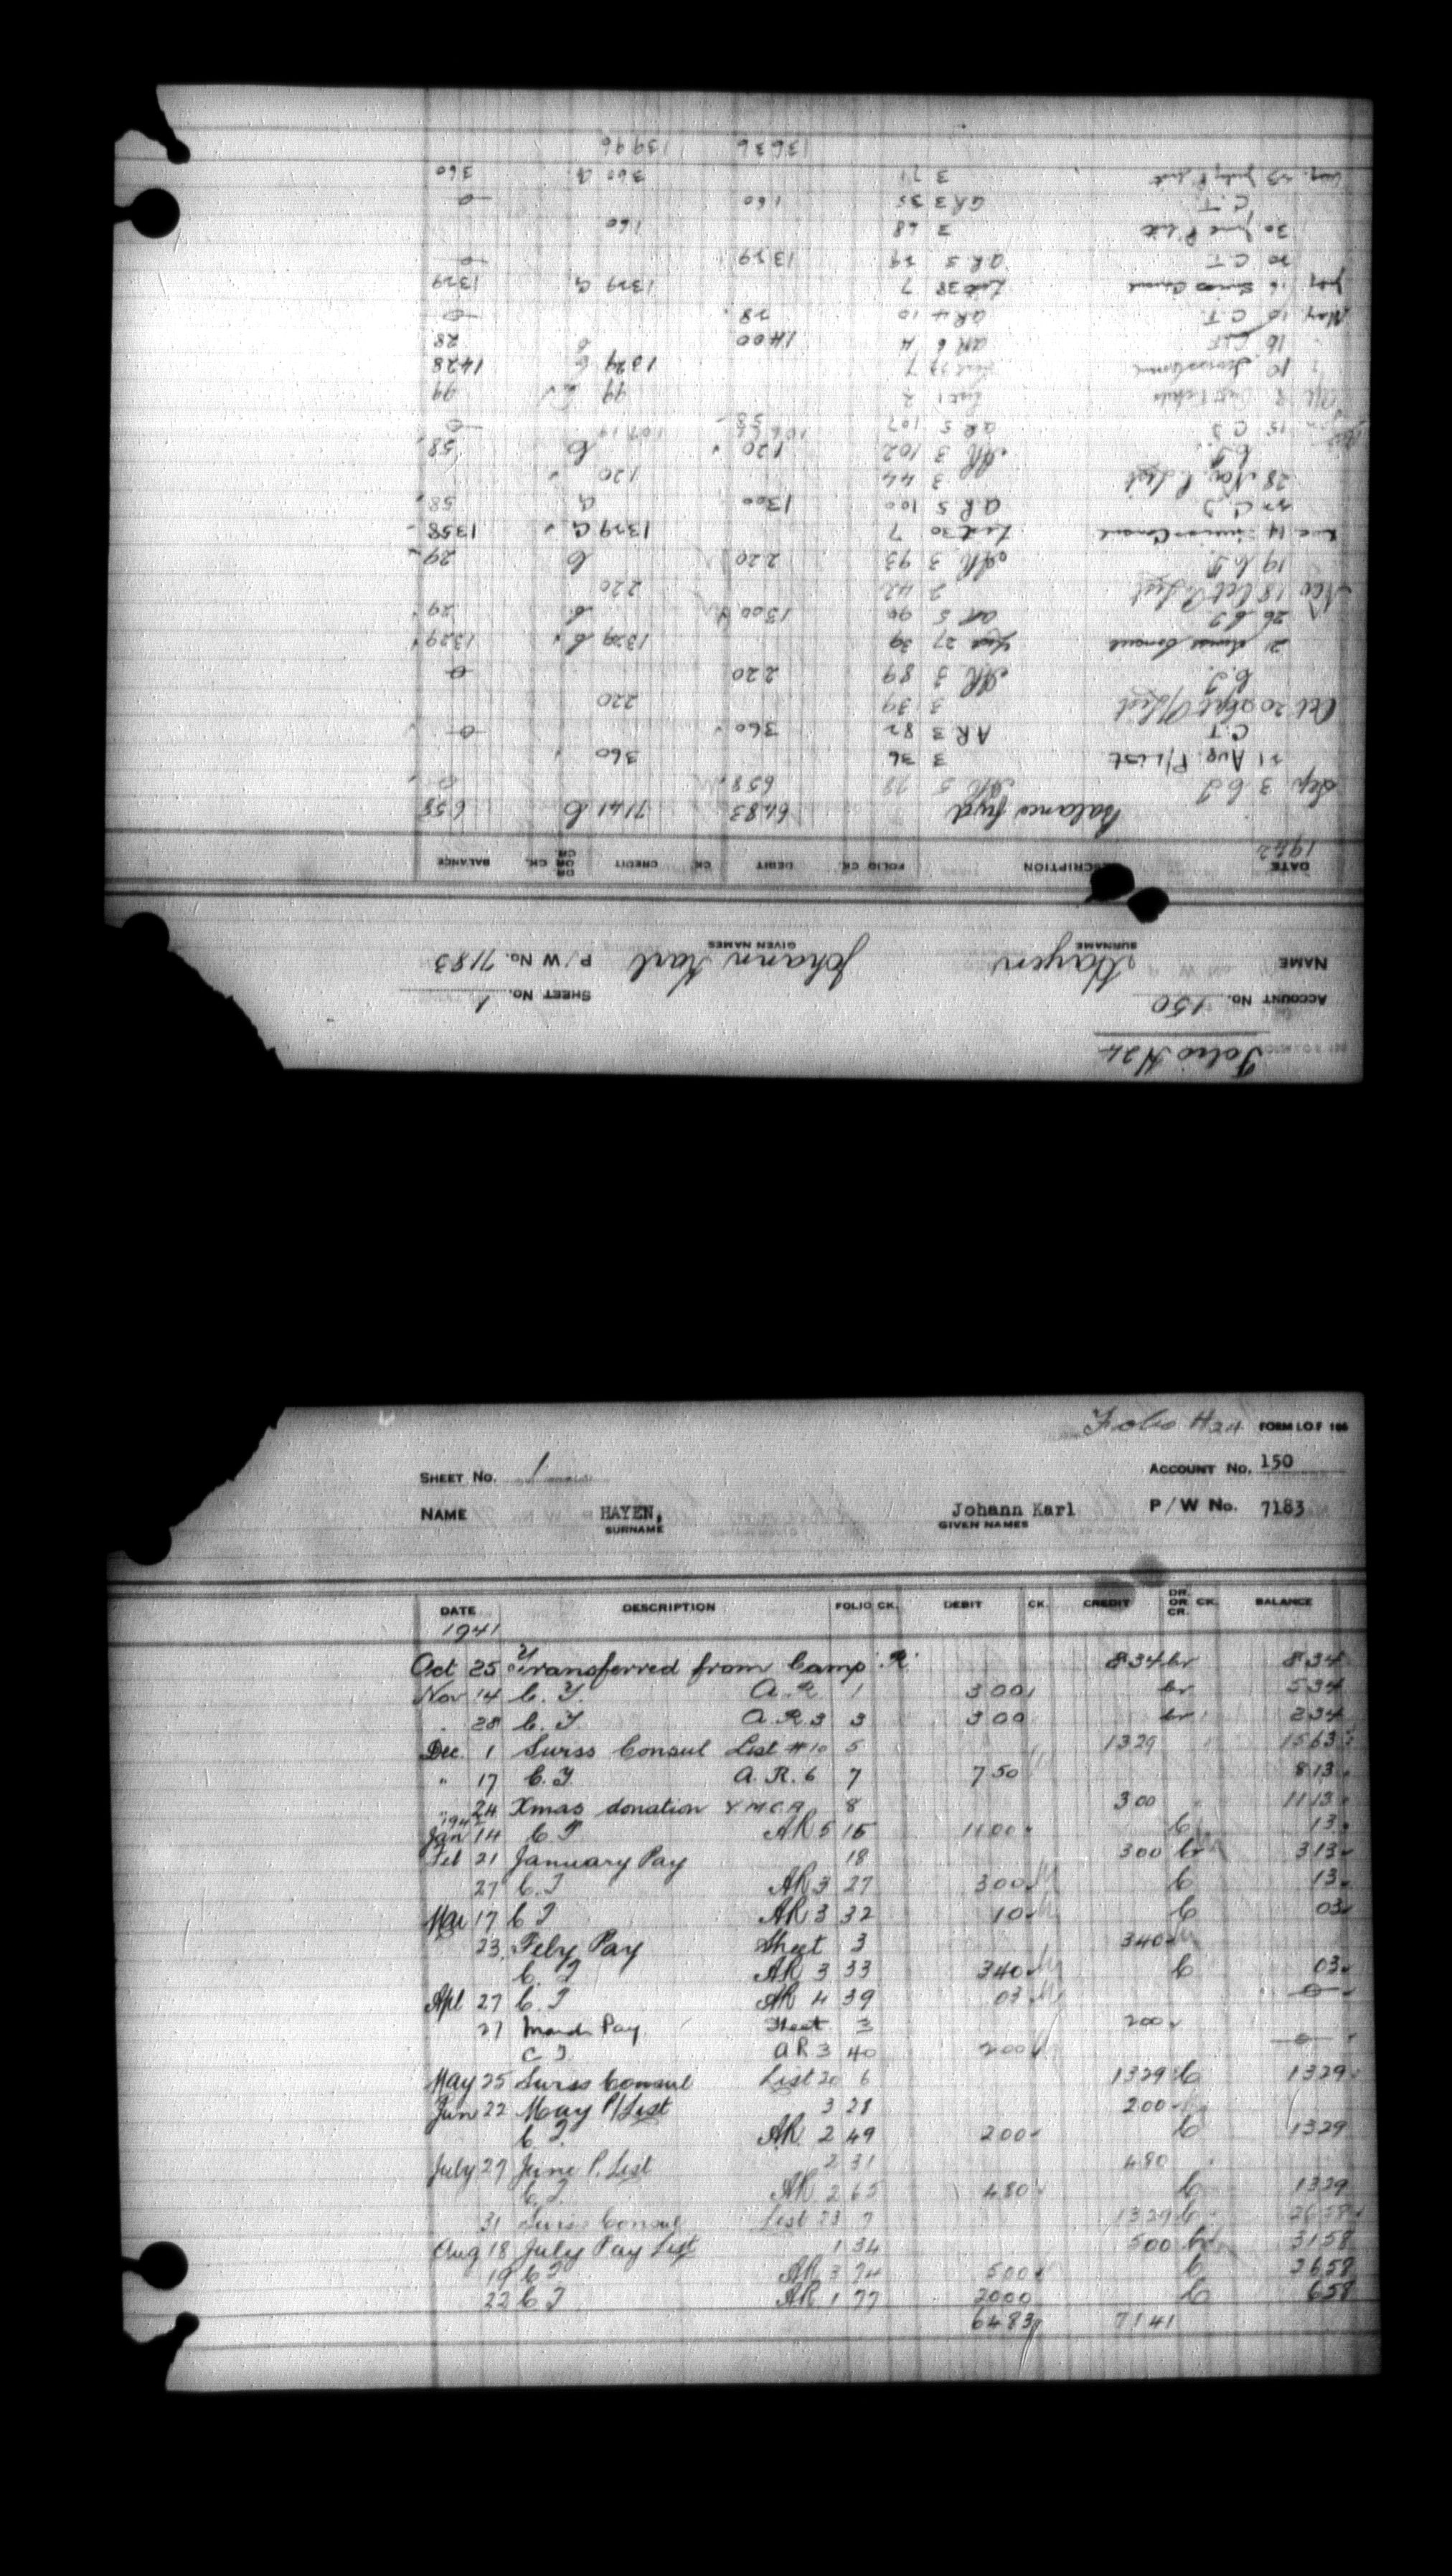 Folio H24
ACCOUNT No. 150 SHEET No. 1
NAME Hayen Johann Karl P/W No. 7183
SURNAME GIVEN NAMES
DATE DESCRIPTION FOLIO CK. DEBIT CK. CREDIT DR. OR CR. CK. BALANCE
1942
Balance fwd 6483 7141 C 658
Sep 3 C T AR 5 78 658 0
21 Aug. P/List 3 36 360
C.T. AR 3 82 360 0
Oct 20 Sept P/List 3 39 220
C.T. AR 3 89 220 0
21 Swiss Consul List 27 39 1329 C 1329
26 C T AR 5 90 1300 C 29
Nov 18 Oct P. List 2 42 220
19 C.T. AR 3 93 220 C 29
14 Swiss Consul List 30 7 1329 C 1358
22 C.T. AR 5 100 1300 C 58
28 Nov P. List 3 44 120
C.T. AR 3 102 120 C 58
15 C T AR 5 107 58 0
2 List 1 2 99 C 99
10 Swiss Consul List 7 1329 C 1428
16 C.T. AR 6 4 1400 C 28
May 10 C.T. AR 4 10 28 0
July 16 Swiss Consul List 38 7 1329 C 1329
20 C.T. AR 5 29 1329 0
30 June P. List 2 68 160
C.T. AR 3 35 160 0
Aug. 23 July P. List 3 71 360 C 360
13636 13996
Folio H24 FORM I.O.F 106
SHEET No. 1 ACCOUNT No. 150
NAME HAYEN, Johann Karl P/W No. 7183
SURNAME GIVEN NAMES
DATE DESCRIPTION FOLIO CK. DEBIT CK. CREDIT DR. OR CR. CK. BALANCE
1941
Oct 25 Transferred from Camp R 834 Cr 834
Nov 14 C. T. A.R. 1 300 Cr 534
28 C. T. A.R.3 3 300 Cr 234
Dec. 1 Swiss Consul List #10 5 1329 1563
" 17 C. T. A.R. 6 7 750 813
24 Xmas donation Y.M.C.A. 8 300 1113
1942
Jan 14 C T AR 5 15 1100 C 13
Feb 21 January Pay 18 300 Cr 313
27 C. T AR 3 27 300 C 13
Mar 17 C T AR 3 32 10 C 03
23. Feby Pay Sheet 3 340
C. T AR 3 33 340 C 03
Apl 27 C. T AR 4 39 03 0
27 March Pay Sheet 3 200
C T. AR 3 40 200 0
May 25 Swiss Consul List 20 6 1329 C 1329
Jun 22 May P/List 3 28 200
C. T. AR 2 49 200 C 1329
July 27 June P. List 2 31 480
C. T. AR 2 65 480 C 1329
31 Swiss Consul List 23 7 1329 C 2658
Aug 18 July Pay List 1 34 500 Cr 3158
19 C T AR 3 74 500 C 2658
22 C T AR 1 77 2000 C 658
6483 7141